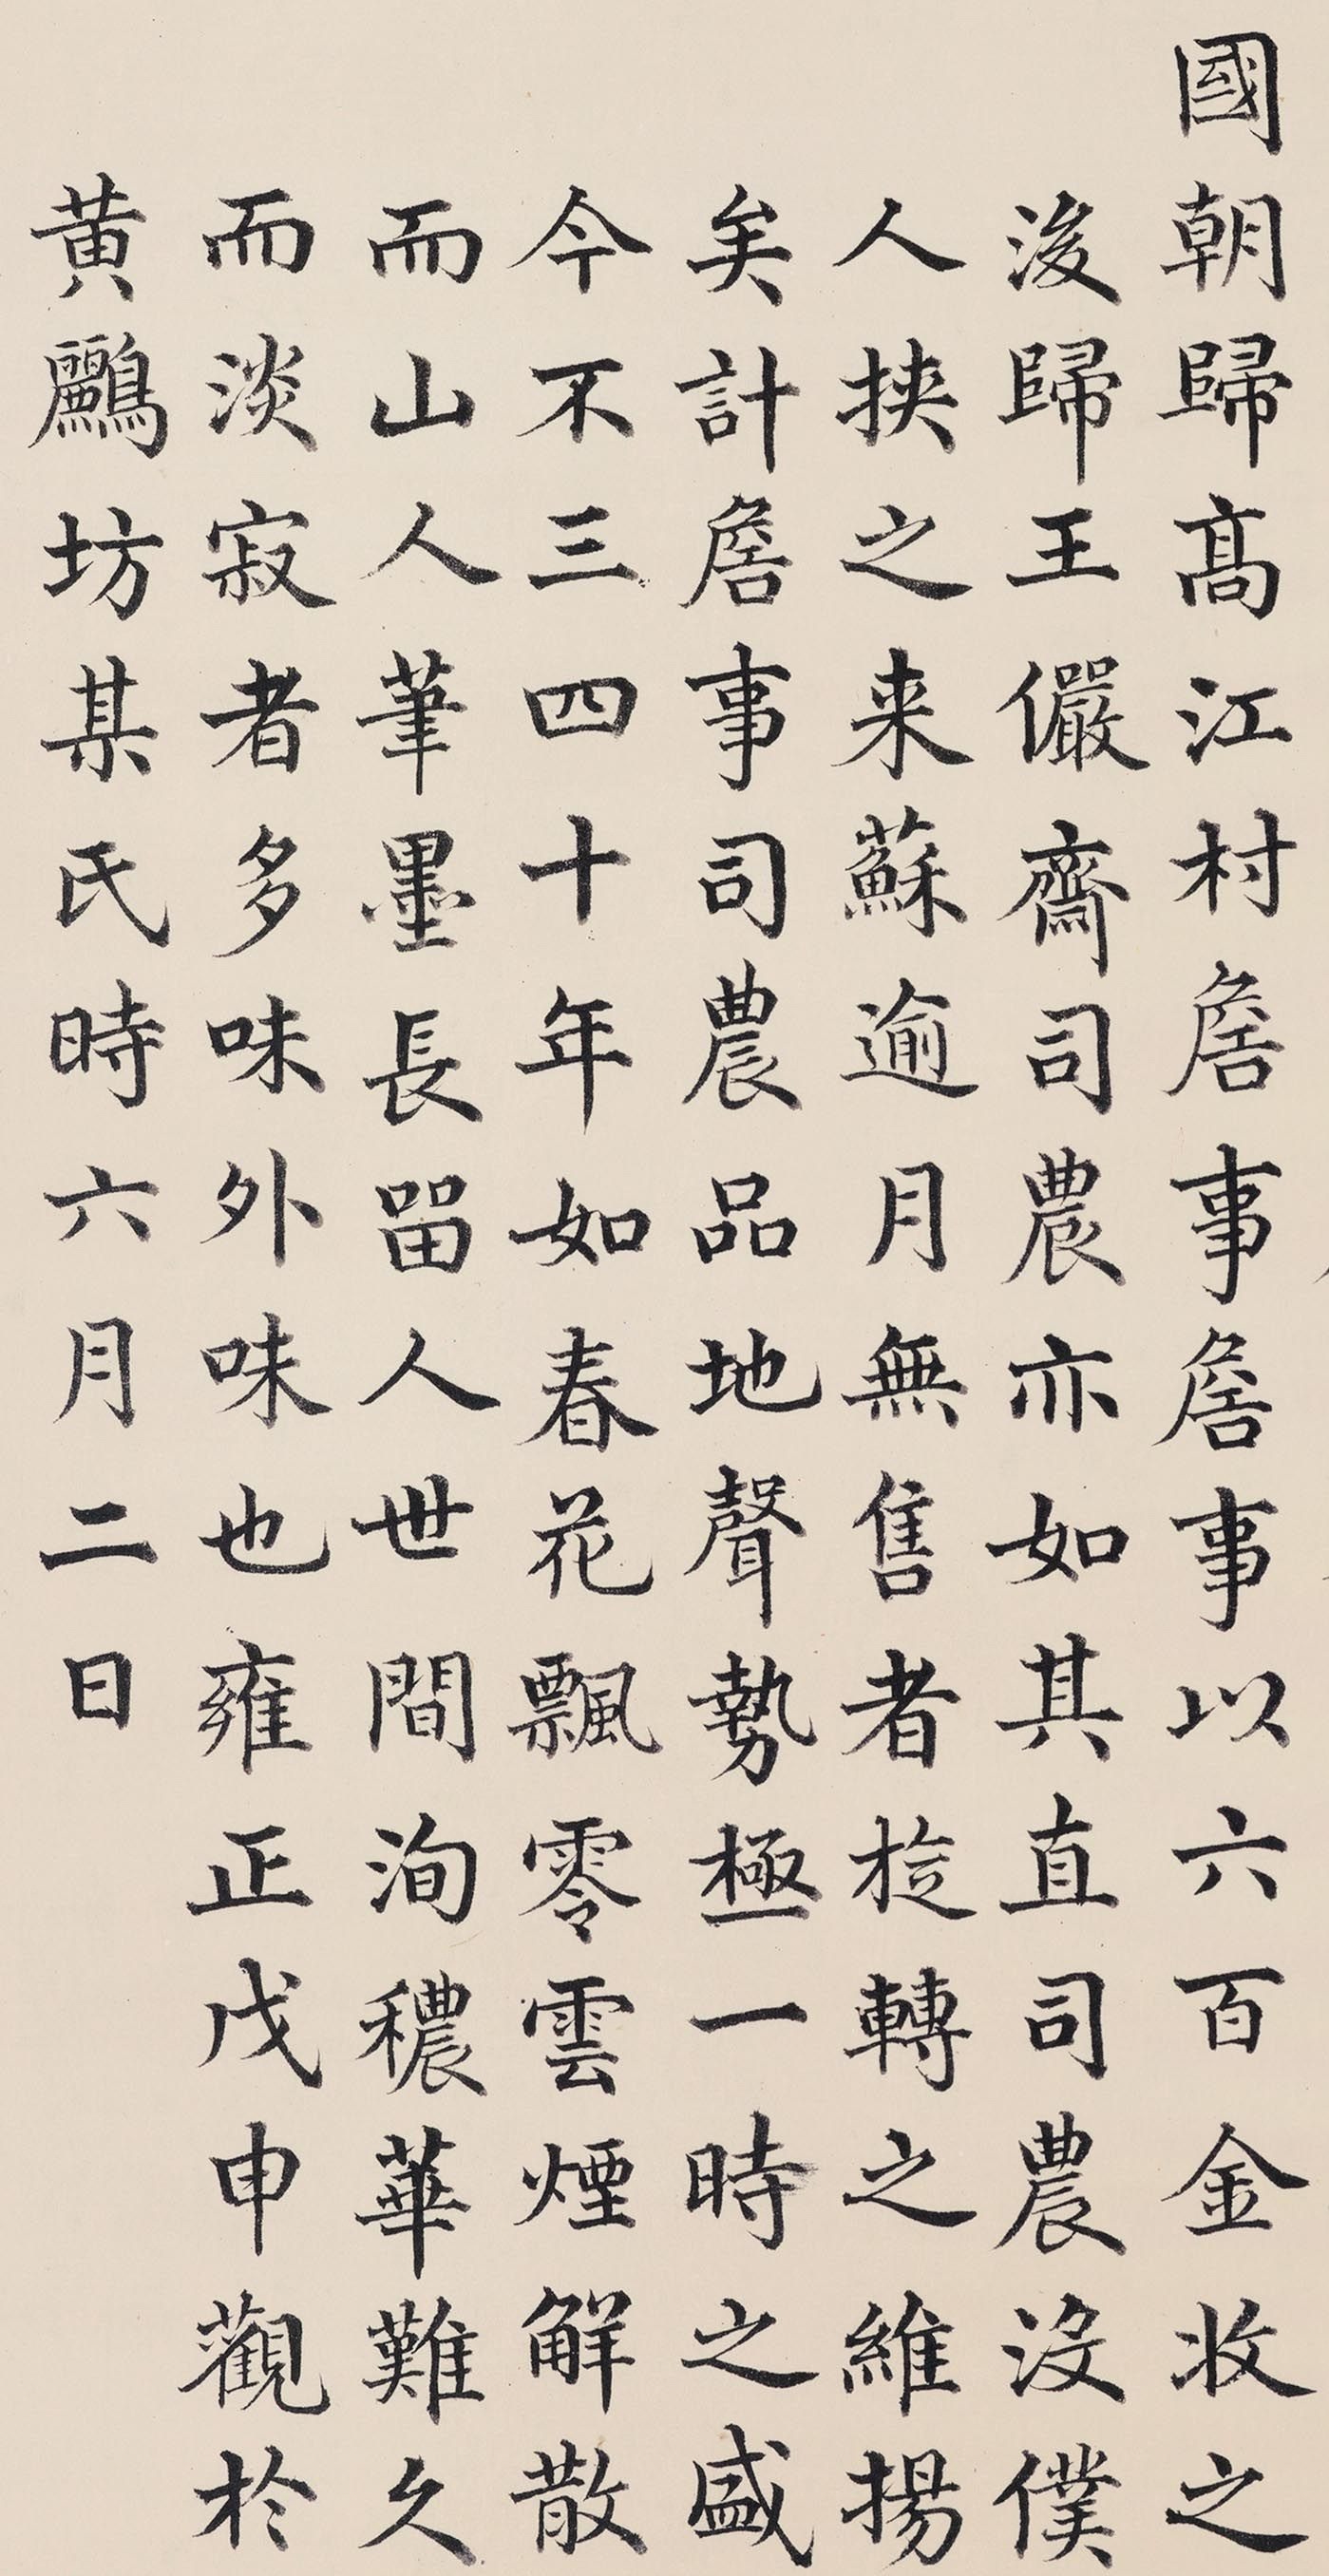 國朝歸髙江村詹事詹事以六百金收之
後歸王儼齋司農亦如其直司農沒僕
人挾之来蘇逾月無售者從轉之維揚
矣計詹事司農品地聲勢極一時之盛
今不三四十年如春花飄零雲煙解散
而山人筆墨長留人世間洵穠華難久
而淡寂者多味外味也雍正戊申觀於
黄鸝坊某氏時六月二日